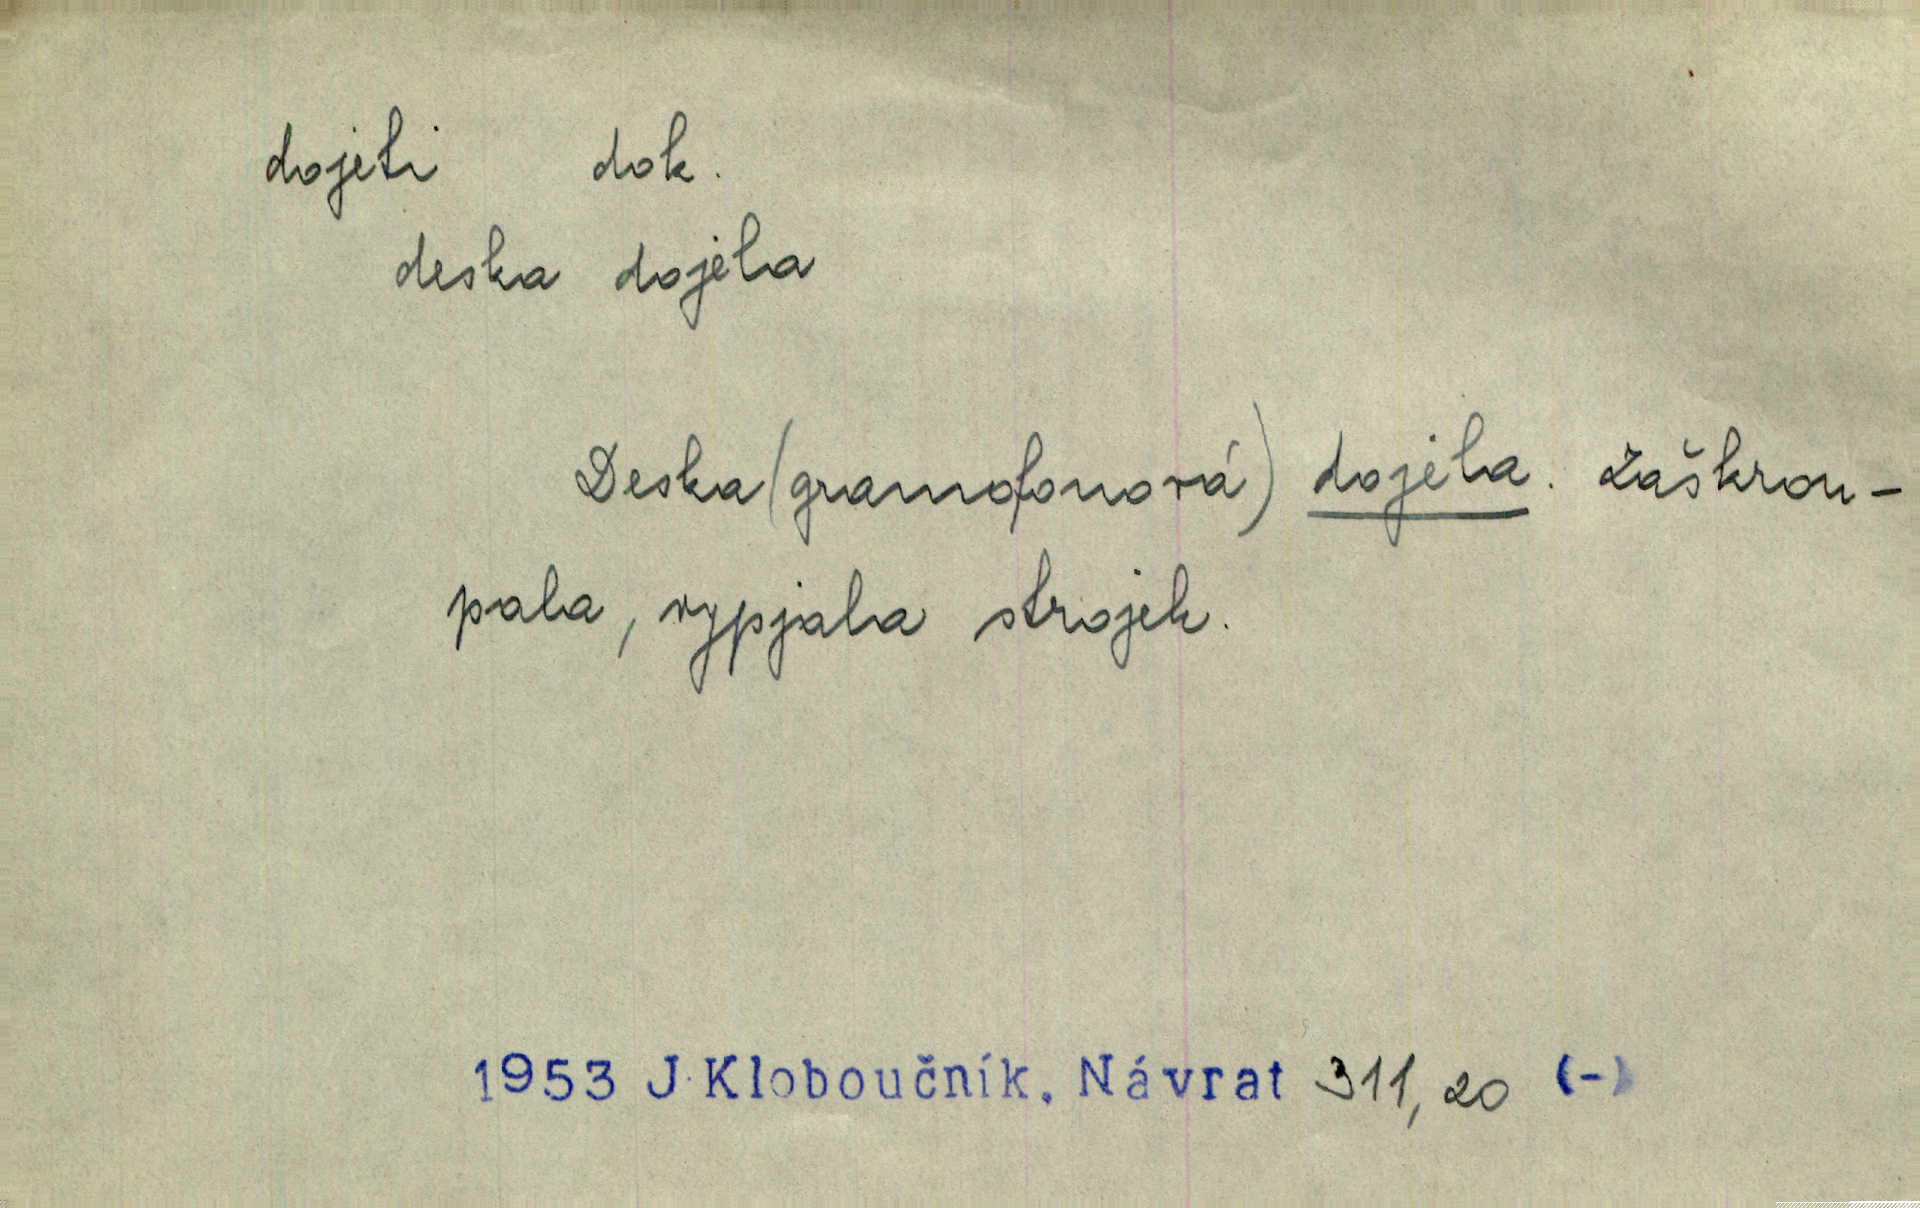 dojeti dok.
deska dojela
Deska (gramofonová) dojela. Zaškrou-
pala, vypjala strojek.
1953 J. Kloboučník, Návrat 311, 20 (-)